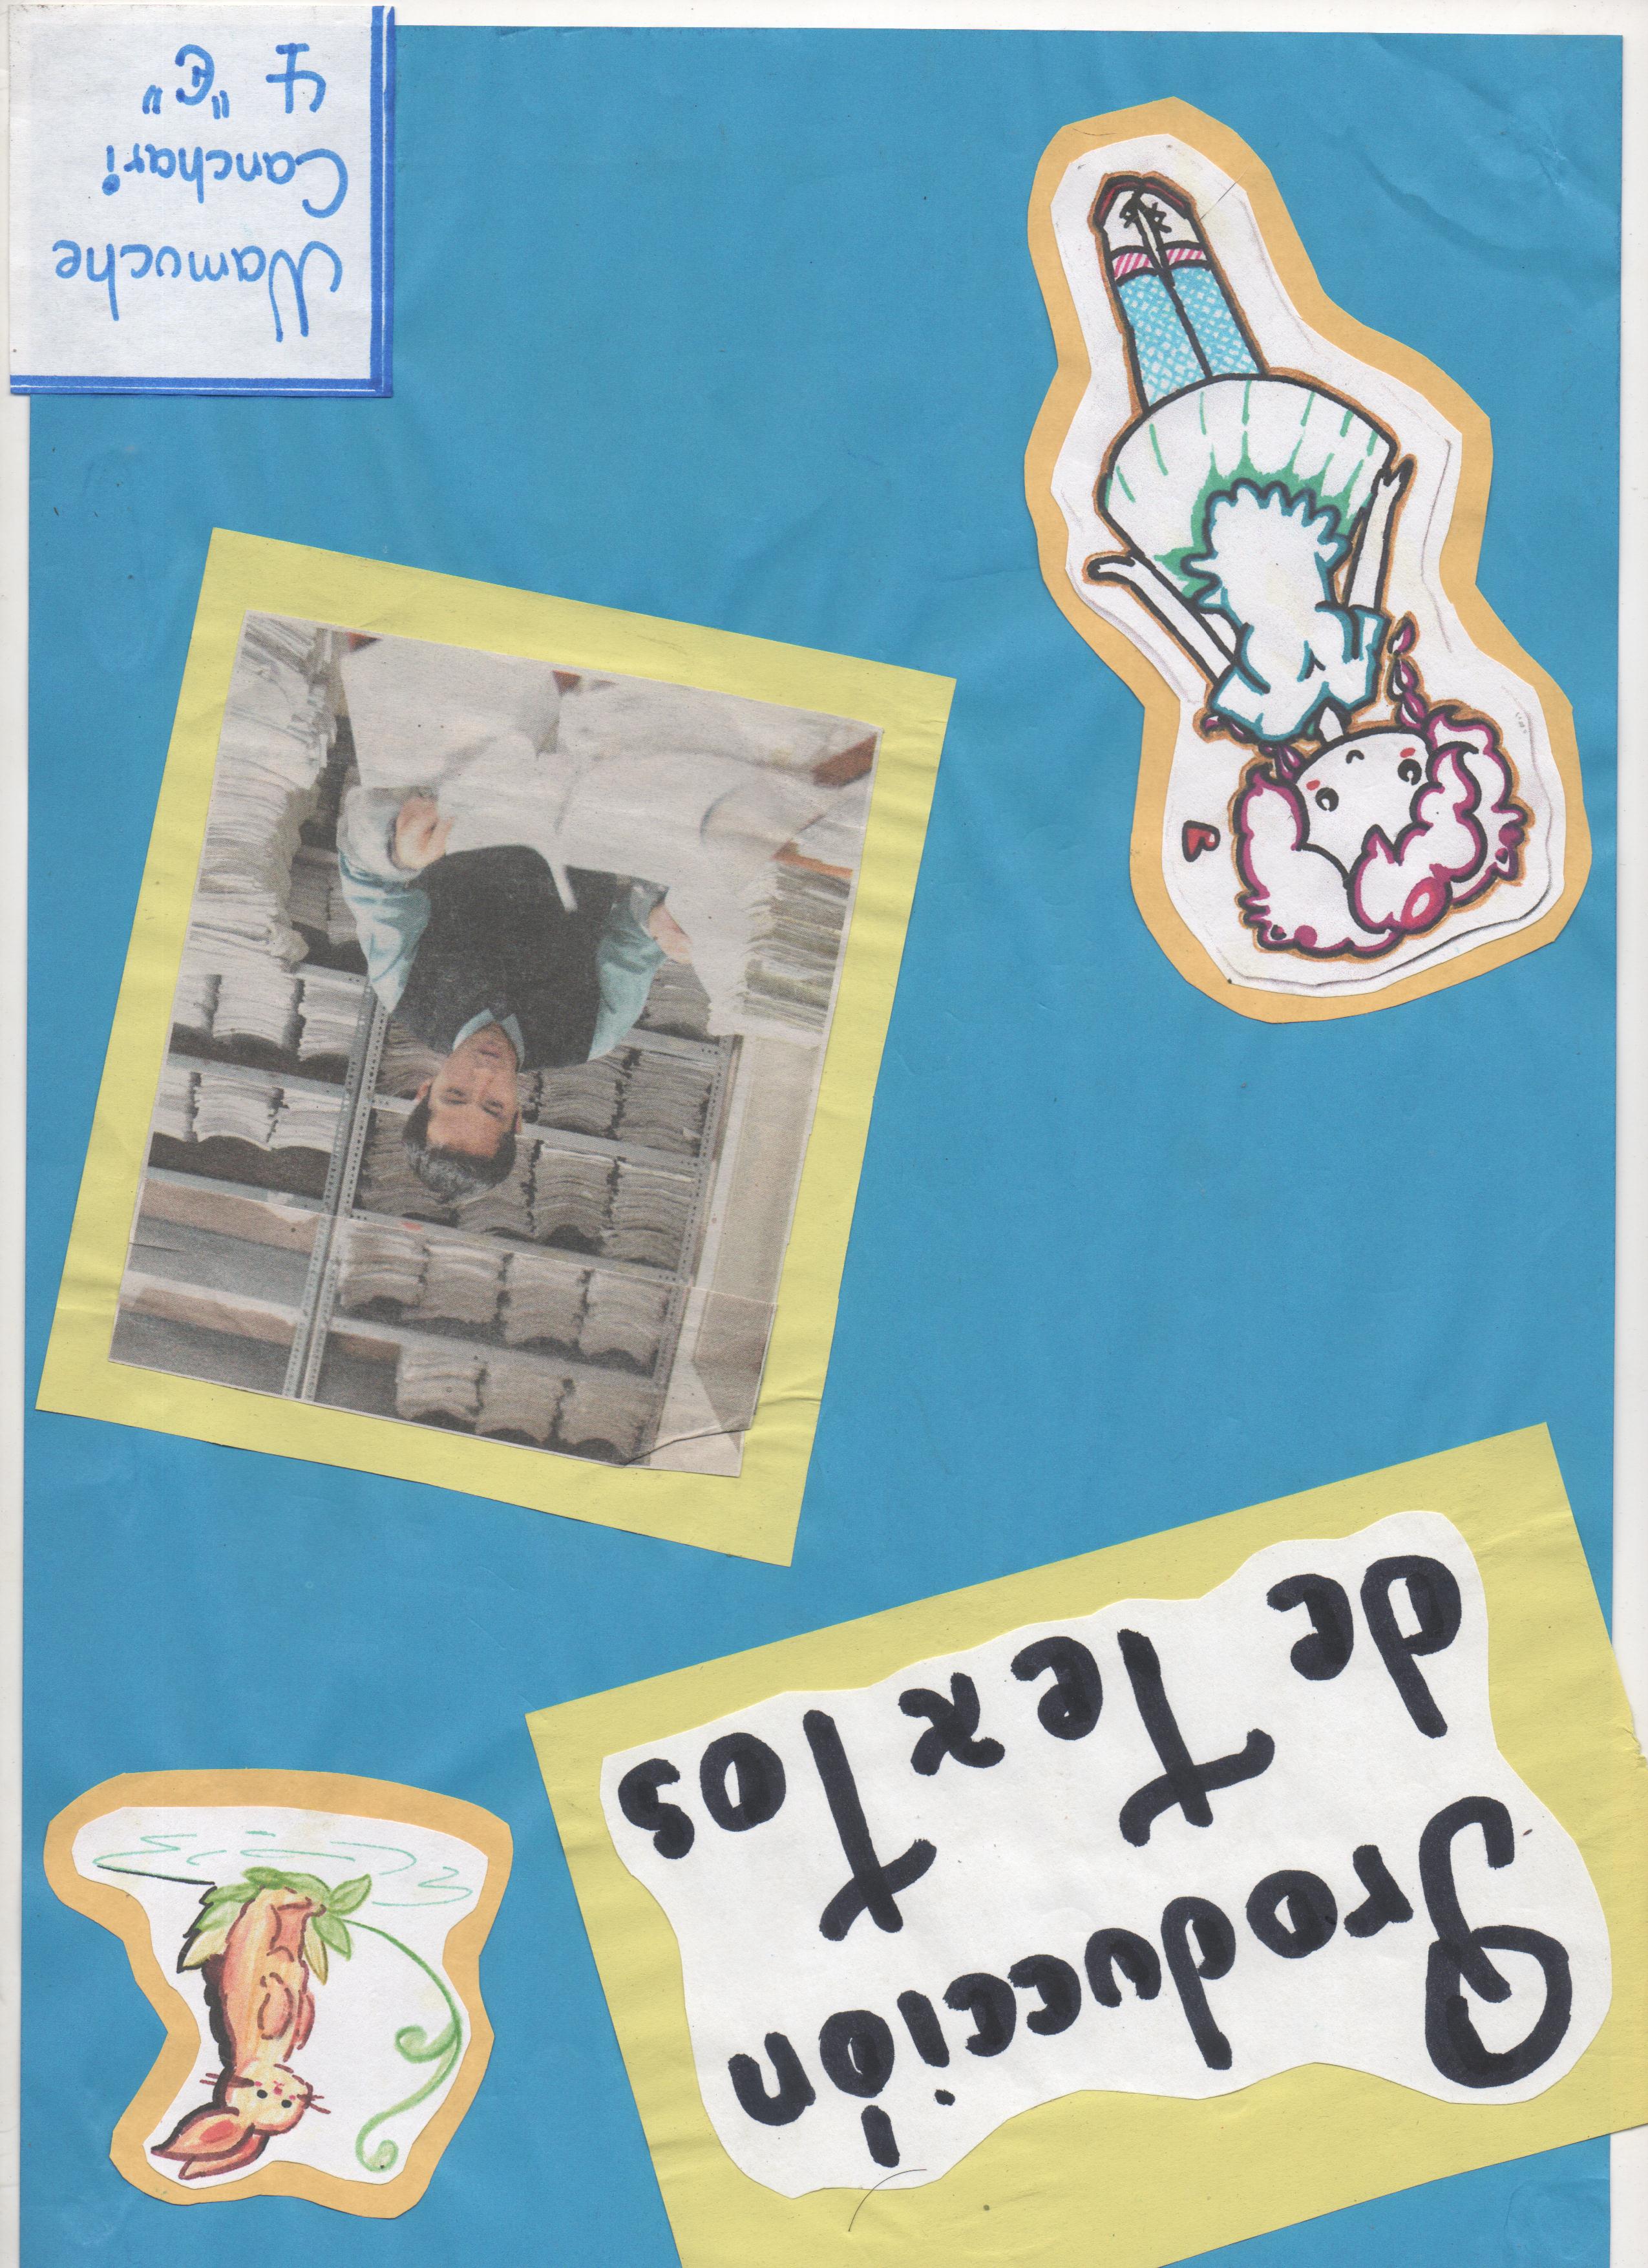 Producción
de Textos
Namuche
Canchari
4 "E"